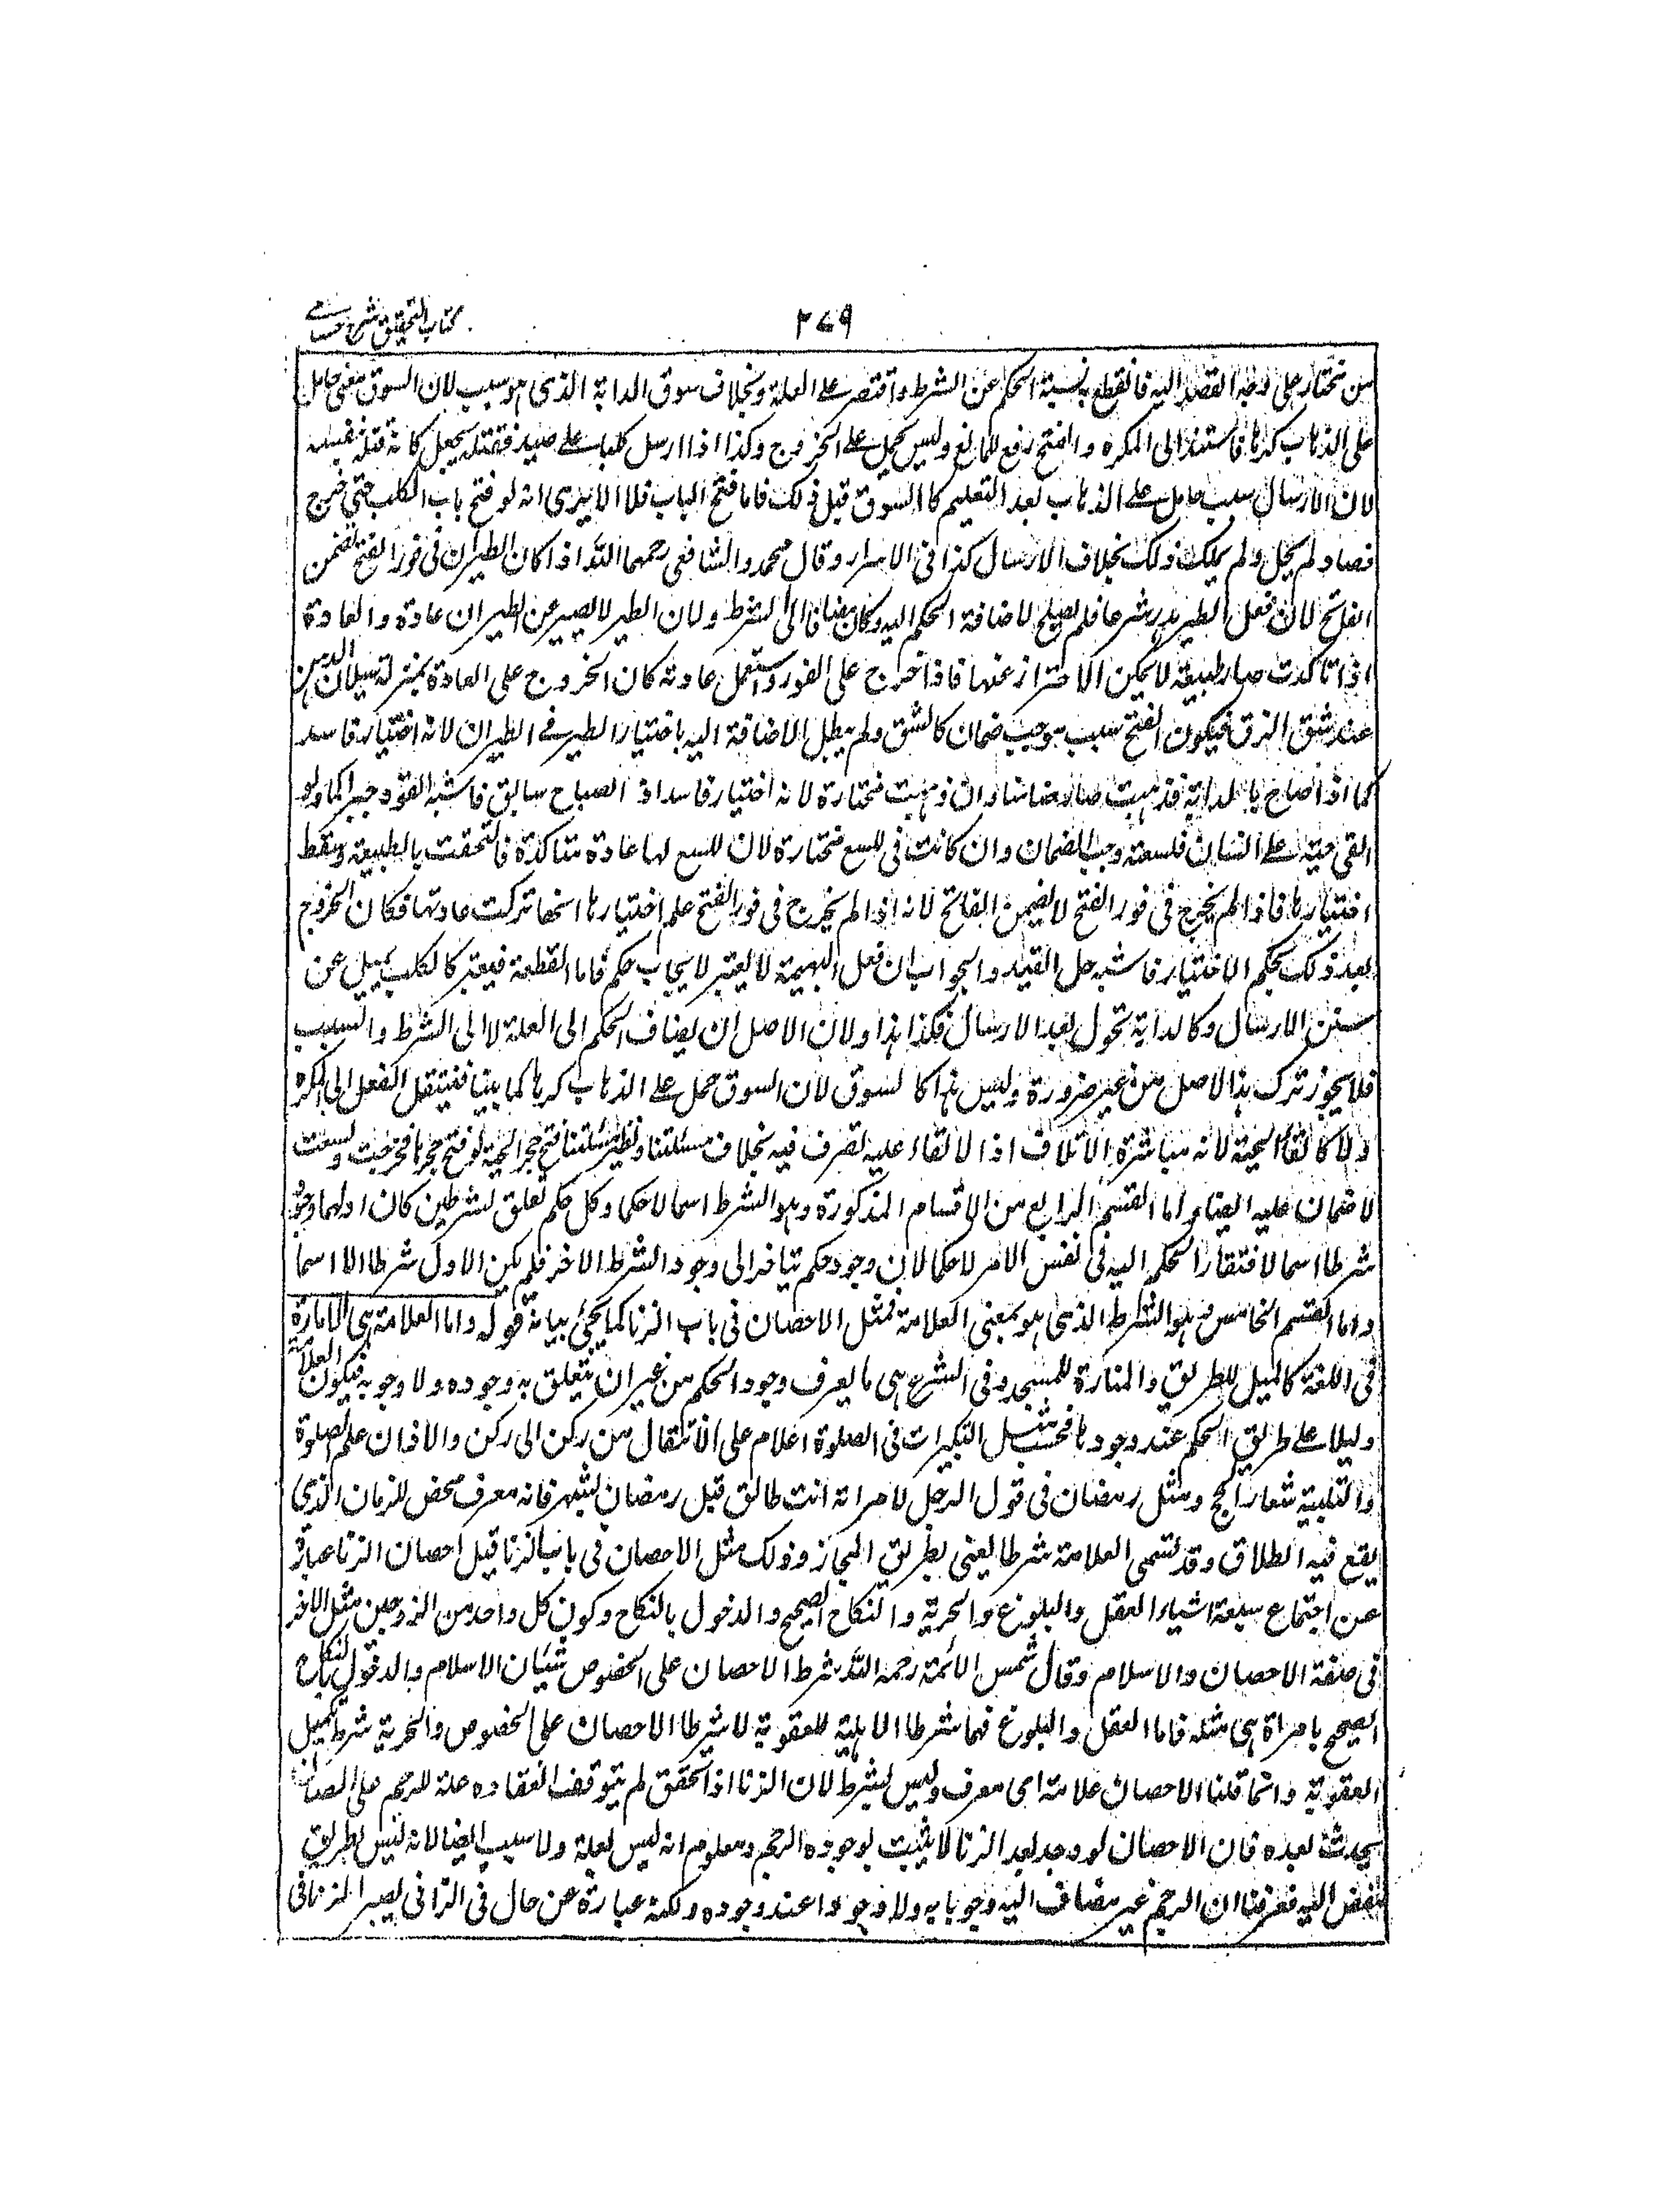 ٢٧٩
كتاب التحقيق شرح حسامى
من مختار على وجه القصد اليه فانقطع به نسبة الحكم عن الشرط واقتصر على العلة وبخلاف سوق الدابة الذى هو سبب لان السوق معنى حامل
على الذهاب كرها فاستند الى المكره والفتح رفع للمانع وليس بحمل على الخروج وكذا اذا ارسل كلبا على صيد فقتله يجعل كانه قتله بنفسه
لان الارسال سبب حامل على الذهاب بعد التعليم كالسوق قبل ذلك فاما فتح الباب فلا الا يرى انه لو فتح باب الكلب حتى خرج
فصاد لم يحل ولم يملك ذلك بخلاف الارسال كذا فى الاسرار وقال محمد والشافعى رحمهما الله اذا كان الطيران فى فور الفتح تضمن
الفاتح لان فعل الطير هدر شرعا فلم يصلح لاضافة الحكم اليه وكان مضافا الى الشرط ولان الطير لا يصبر عن الطيران عادة والعادة
اذا تاكدت صار طبيعة لا يمكن الاحتراز عنها فاذا خرج على الفور واستعمل عادته كان الخروج على العادة بمنزلة سيلان الدهن
عند شق الزق فيكون الفتح سبب موجب ضمان كالشق ولم يبطل الاضافة اليه باختيار الطير فى الطيران لانه اختيار فاسد
كما اذا صاح بالدابة فذهبت صار ضامنا وان ذهبت مختارة لانه اختيار فاسد اذ الصياح سابق فاشبه القود جبرا كما ولو
القى حية على انسان فلسعته وجب الضمان وان كانت فى اللسع مختارة لان اللسع لها عادة متاكدة فالتحقت بالطبيعة وسقط
اختيارها فاذا لم يخرج فى فور الفتح لا يضمن الفاتح لانه اذا لم يخرج فى فور الفتح علم اختيارها انها تركت عادتها فكان الخروج
بعد ذلك بحكم الاختيار فاشبه حل القيد والجواب ان فعل البهيمة لا يعتبر لايجاب حكم فاما القطعة فيعتبر كالكلب يميل عن
سنن الارسال وكالدابة تحول بعد الارسال فكذا هذا ولان الاصل ان يضاف الحكم الى العلة لا الى الشرط والسبب
فلا يجوز ترك هذا الاصل من غير ضرورة وليس هذا كالسوق لان السوق حمل على الذهاب كرها كما بينا فينتقل الفعل الى المكره
ولا كالقاء الحية لانه مباشرة الاتلاف اذ الالقاء عليه تصرف فيه بخلاف مسئلتنا ونظير مسئلتنا فتح جحر الحية لو فتح جحرها فخرجت ولسعت
لا ضمان عليه ايضا واما القسم الرابع من الاقسام المذكورة وهو الشرط اسما لا حكما وكل حكم تعلق بشرطين كان اولهما وجودا
شرطا اسما لافتقار الحكم اليه فى نفس الامر لا حكما لان وجود حكم يتاخر الى وجود الشرط الاخر فلم يكن الاول شرطا الا اسما
واما القسم الخامس وهو الشرط الذى هو بمعنى العلامة فمثل الاحصان فى باب الزنا كما يجئ بيانه قوله واما العلامة هى الامارة
فى اللغة كالميل للطريق والمنارة للمسجد وفى الشرع هى ما يعرف وجود الحكم من غير ان يتعلق به وجوده ولا وجوبه فيكون العلامة
دليلا على طريق الحكم عند وجودها فحسب مثل التكبيرات فى الصلوة اعلام على الانتقال من ركن الى ركن والاذان علم الصلوة
والتلبية شعار الحج ومثل رمضان فى قول الرجل لامراته انت طالق قبل رمضان بشهر فانه معرف محض للزمان الذى
يقع فيه الطلاق وقد تسمى العلامة شرطا يعنى بطريق المجاز وذلك مثل الاحصان فى باب الزنا قيل احصان الزنا عبارة
عن اجتماع سبعة اشياء العقل والبلوغ والحرية والنكاح الصحيح والدخول بالنكاح وكون كل واحد من الزوجين مثل الاخر
فى صفة الاحصان والاسلام وقال شمس الائمة رحمه الله شرط الاحصان على الخصوص شيئان الاسلام والدخول بالنكاح
الصحيح بامراة هى مثله فاما العقل والبلوغ فهما شرطا الاهلية للعقوبة لا شرطا الاحصان على الخصوص والحرية شرط تكميل
العقوبة وانما قلنا الاحصان علامة اى معرف وليس بشرط لان الزنا اذا تحقق لم يتوقف انعقاده علة للرجم على احصان
يحدث بعده فان الاحصان لو وجد بعد الزنا لا يثبت بوجوده الرجم ومعلوم انه ليس بعلة ولا سبب ايضا لانه ليس بطريق
مفض اليه فعرفنا ان الرجم غير مضاف اليه وجوبا به ولا وجودا عند وجوده ولكنه عبارة عن حال فى الزانى يصير الزنا فى